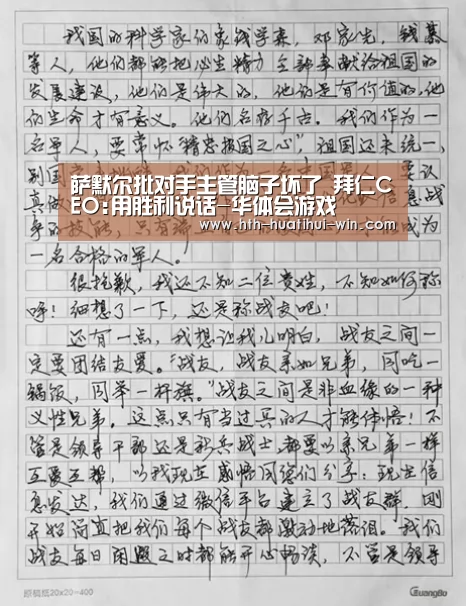 我国的科学家们象钱学森，邓家先，钱慕
等人，他们都能把心生精力全部奉献给祖国的
发展建设，他们是伟大的，他们是有价值的，他
们的生命才有意义。他们名存千古。我们作为一
名军人，要常怀"精忠报国之心"，祖国还未统一，
萨默尔批对手主管脑子坏了 拜仁C
EO:用胜利说话-华体会游戏
www.hth-huatihui-win.com
一名合格的军人。
很抱歉，我还不知二位贵姓，不知如何称
呼！细想了一下，还是称战友吧！
还有一点，我想让我儿明白，战友之间一
定要团结友爱。"战友，战友亲如兄弟，同吃一
锅饭，同举一杆旗。"战友之间是非血缘的一种
义性兄弟。这点只有当过兵的人才能体悟！不
管是领导干部还是新兵战士，都要以亲兄弟一样
互爱互帮，以我现在感悟同你们分享：现在信
息发达，我们通过微信平台建立了战友群，刚
开始简直把我们每个战友都激动地落泪。我们
战友每日闲暇之时都能开心畅谈，不管是领导
原稿纸20x20=400
GuangBo